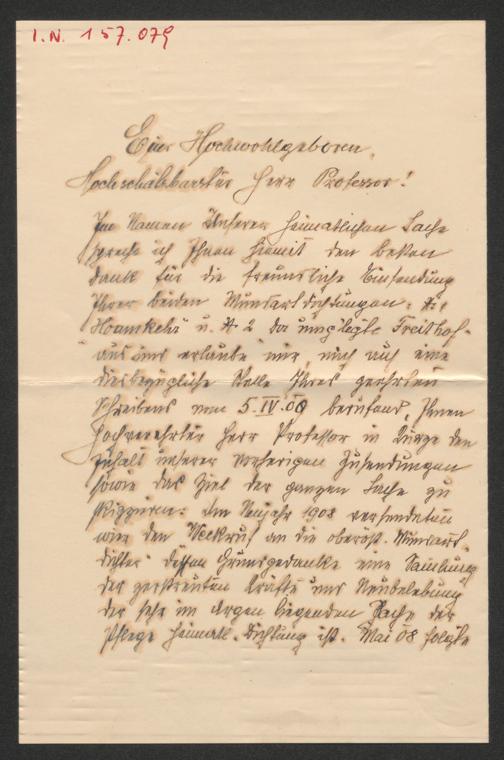 I.N. 157.079
Euer Hochwohlgeboren,
Hochschätzbarster Herr Professor!
Im Namen unserer heimatlichen Sache
spreche ich Ihnen hiemit den besten
Dank für die freundliche Einsendung
Ihrer beiden Mundartdichtungen:
Hoamkehr u. A 2 da Freithof-
aus und erlaube mir, mich auf eine
diesbezügliche Stelle Ihres geehrten
Schreibens vom 5. IV. 09 berufend, Ihnen
hochverehrter Herr Professor in Kürze den
Inhalt unserer vorherigen Zusendungen
sowie das Ziel der ganzen Sache zu
skizzieren: Im Neujahr 1908 versendeten
wir den Weckruf an die oberöst. Mundart-
dichter dessen Grundgedanke eine Samlung
der zerstreuten Kräfte und Neubelebung
der sehr im Argen liegenden Sache der
Pflege heimatl. Dichtung ist. Mai 08 folgte